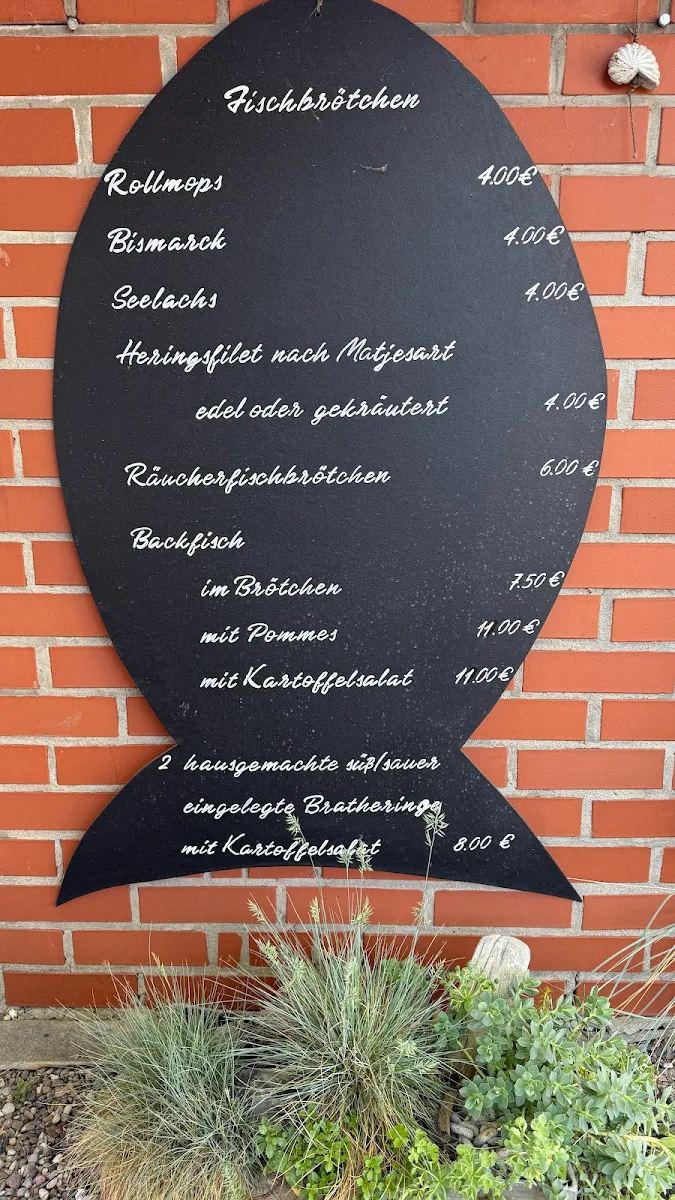 Fischbrötchen
Rollmops 4.00€
Bismarck 4.00€
Seelachs 4.00€
Heringsfilet nach Matjesart
edel oder gekräutert 4.00€
Räucherfischbrötchen 6.00€
Backfisch
im Brötchen 7.50€
mit Pommes 11.00€
mit Kartoffelsalat 11.00€
2 hausgemachte süß/sauer
eingelegte Bratheringe
mit Kartoffelsalat 8.00 €